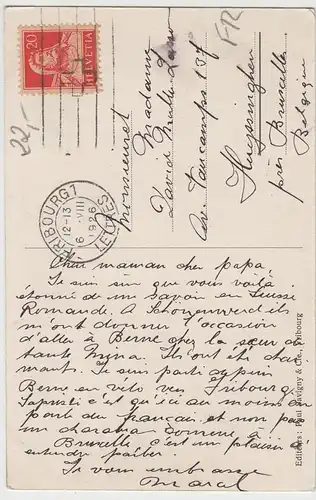 20
HELVETIA
22,-
FR
FRIBOURG 1
12-13
6.VIII
1926
LETTRES
Monsieur et
Madame
David
Av.
Huyssinghen
près Bruxelles
Belgique
Cher maman cher papa,
Je suis sur que vous voilà
étonné de me savoir en Suisse
Romande. A Schönenwerd ils
m'ont donner l'occasion
d'aller à Berne chez la sœur de
tante Mina. Ils ont été char
mants. Je suis parti depuis
Berne en vélo vers Fribourg.
Sapristi c'est qu'ici au moins on
parle du français et non pas
un charabia comme à
Bruxelle, c'est un plaisir d'
entendre parler.
Je vous embrasse
Marcel
Editeurs: Paul Savigny & Cie., Fribourg